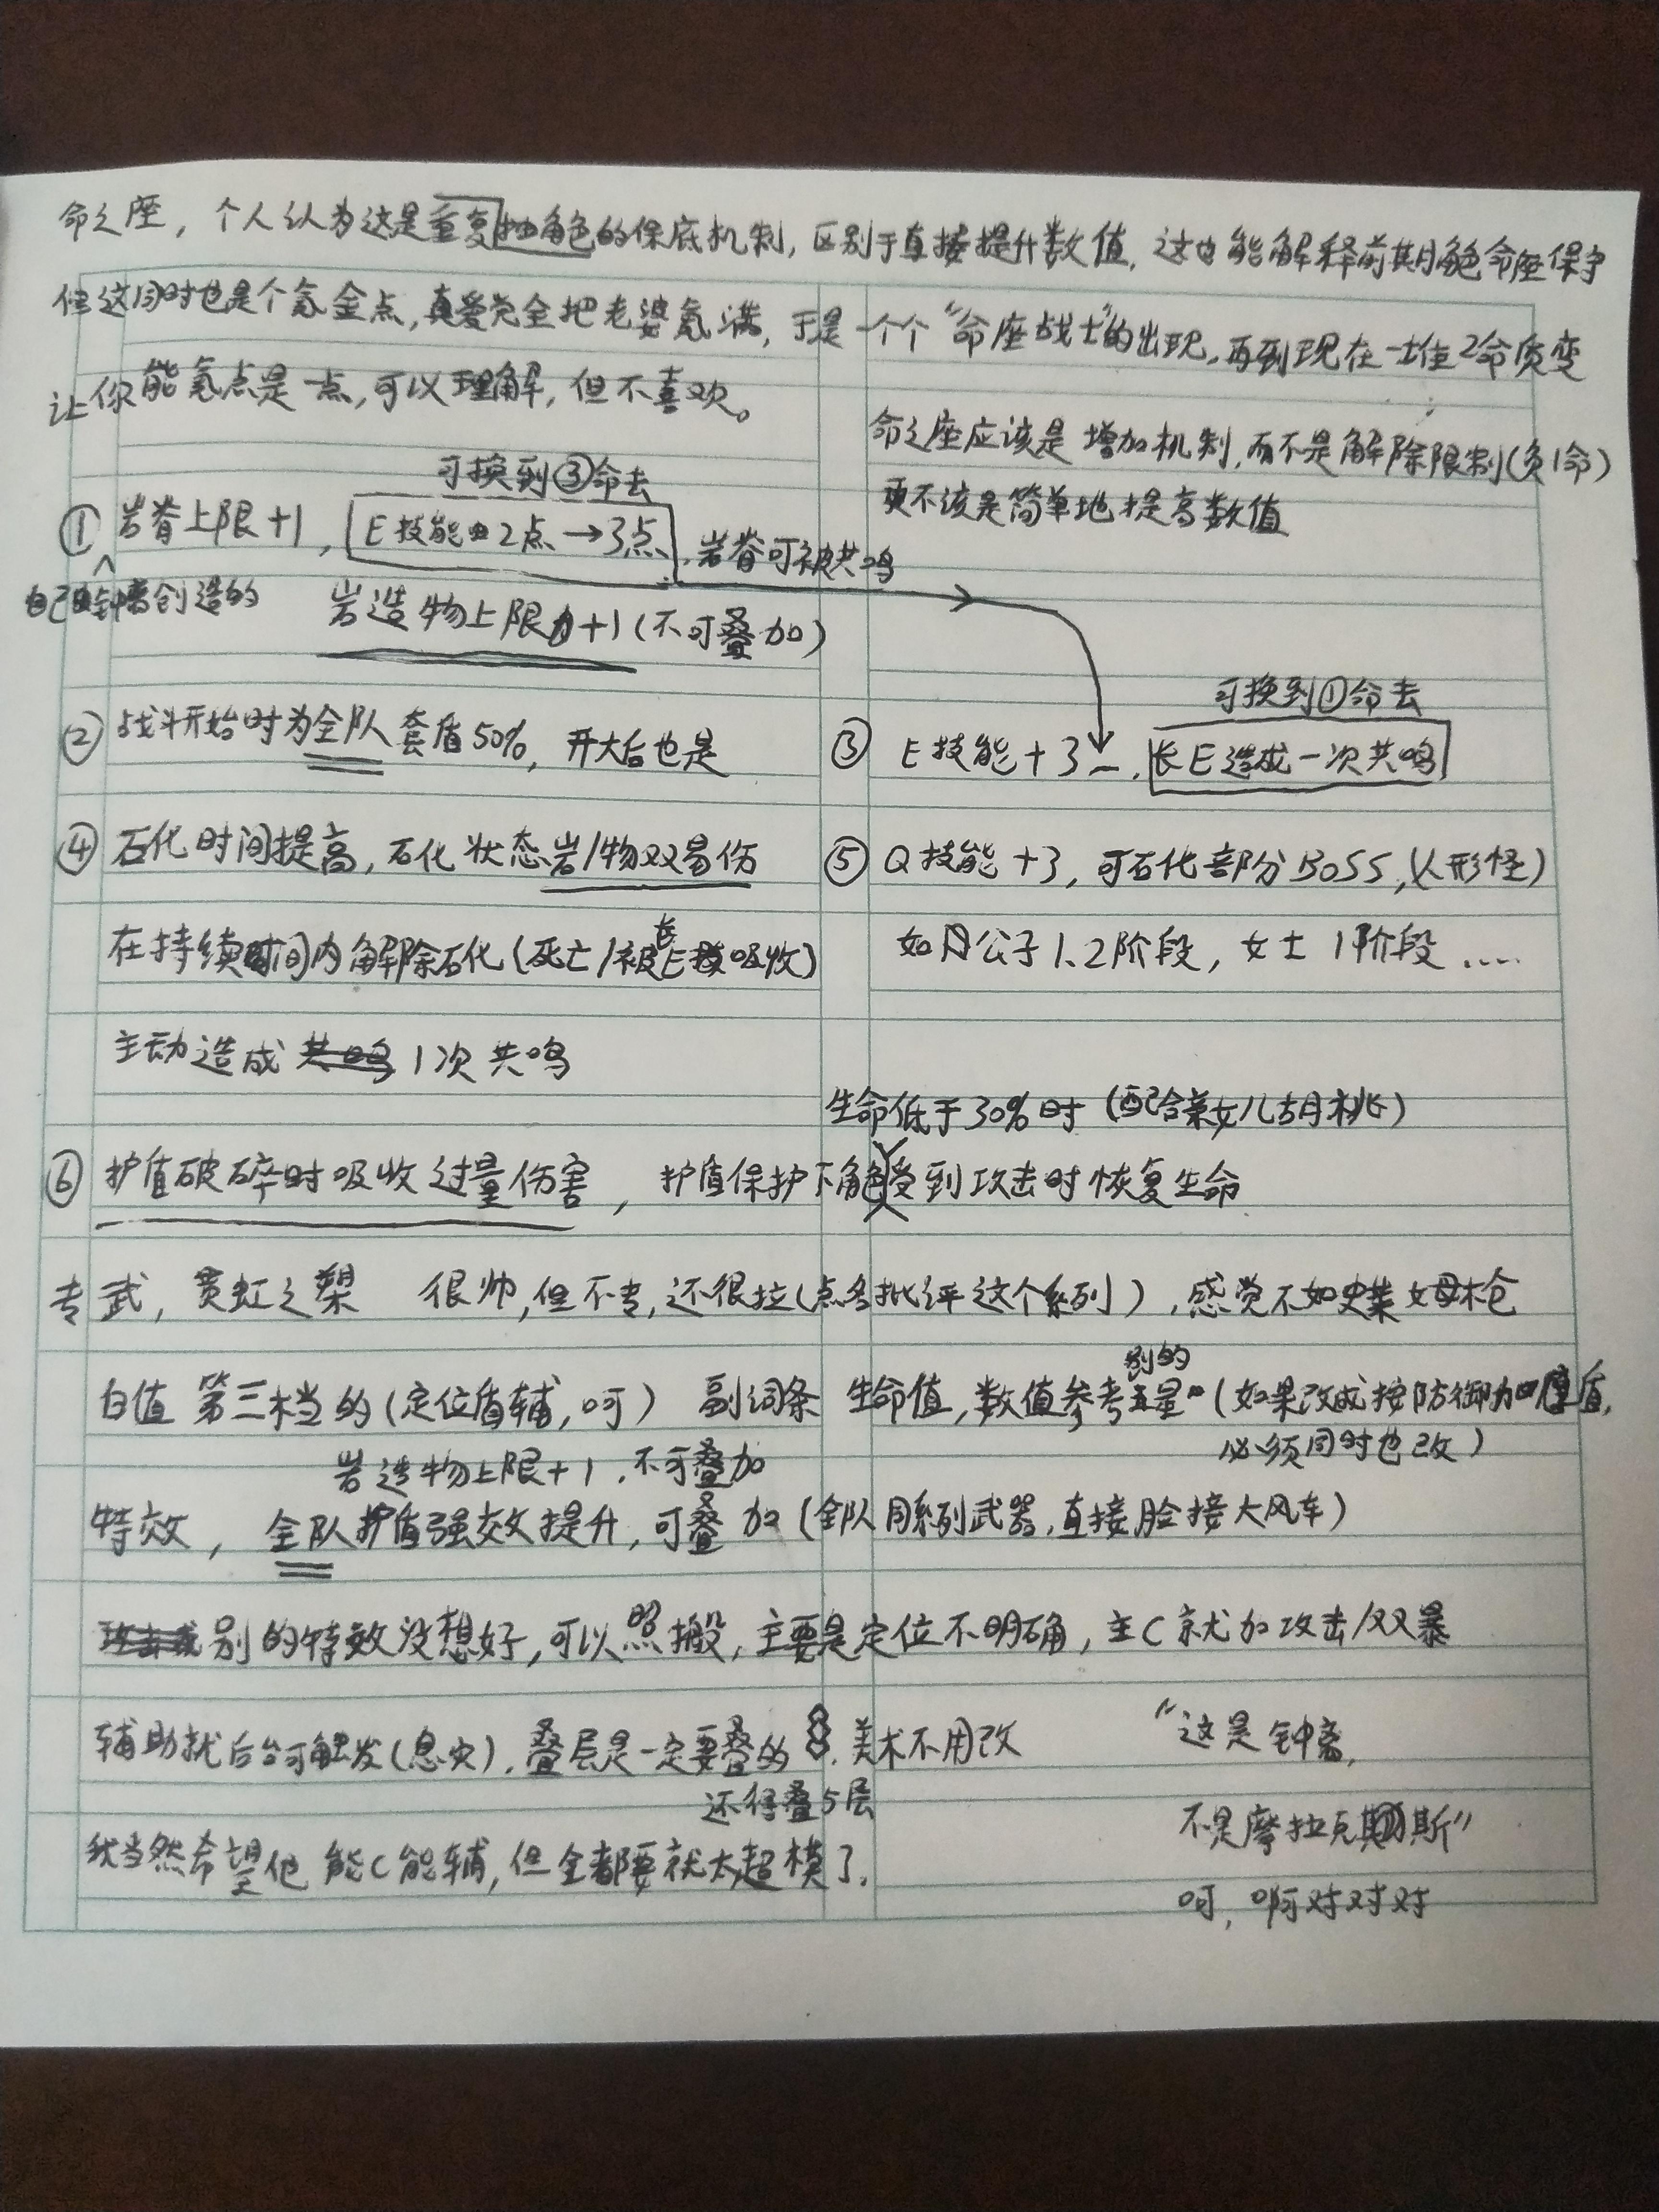 命之座，个人认为这是重复抽角色的保底机制，区别于直接提升数值，这也能解释前期角色命座保守
但这同时也是个氪金点，真爱党会把老婆氪满，于是一个个“命座战士”的出现，再到现在一堆2命质变
让你能氪点是一点，可以理解，但不喜欢。
命之座应该是增加机制，而不是解除限制(负1命)
更不该是简单地提高数值
可换到③命去
① 岩脊上限+1，E技能由2点→3点，岩脊可被共鸣
自己钟离创造的 岩造物上限+1(不可叠加)
② 战斗开始时为全队套盾50%，开大后也是
可换到①命去
③ E技能+3，长E造成一次共鸣
④ 石化时间提高，石化状态岩/物双易伤
在持续时间内解除石化(死亡/被长E吸收)
主动造成共鸣1次共鸣
⑤ Q技能+3，可石化部分BOSS，(人形怪)
如公子1、2阶段，女士1阶段……
生命低于30%时(配合菜女儿胡桃)
⑥ 护盾破碎时吸收过量伤害，护盾保护下角色受到攻击时恢复生命
专武，贯虹之槊 很帅，但不专，还很拉(点名批评这个系列)，感觉不如史莱姆枪
白值 第三档的(定位盾辅，呵) 副词条 生命值，数值参考别的五星(如果改成按防御加厚盾，
必须同时也改)
岩造物上限+1，不可叠加
特效，全队护盾强效提升，可叠加(全队同系列武器，直接脸接大风车)
别的特效没想好，可以照搬，主要是定位不明确，主C就加攻击/双暴
辅助就后台可触发(息灾)，叠层是一定要叠的，美术不用改
还得叠5层
我当然希望他能C能辅，但全都要就太超模了。
“这是钟离，
不是摩拉克斯”
呵，啊对对对